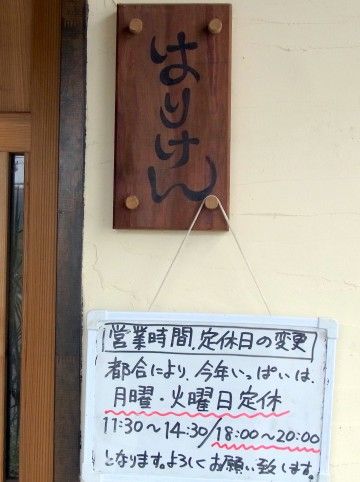 はりけん
営業時間、定休日の変更
都合により、今年いっぱいは、
月曜・火曜日定休
11:30～14:30/18:00～20:00
となります。よろしくお願い致します。